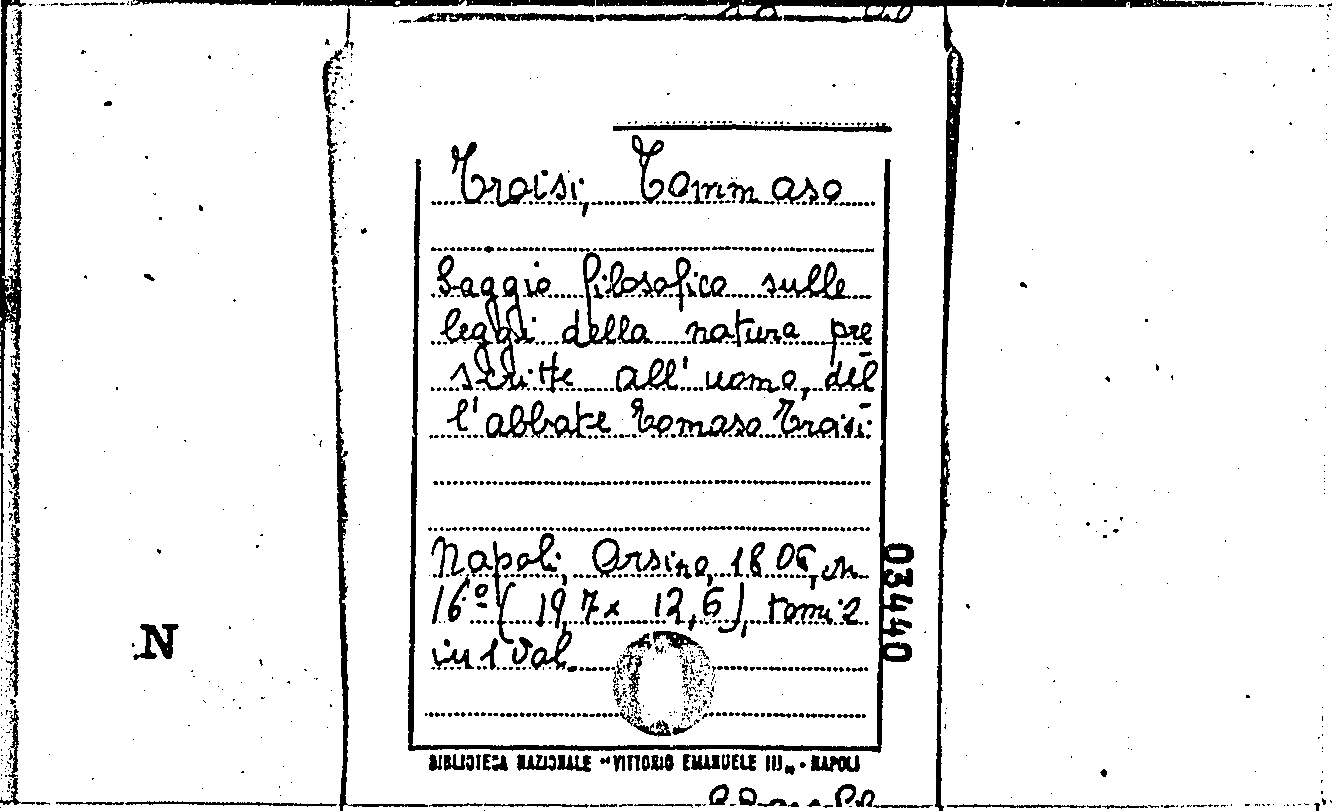 Troisi, Tommaso
Saggio filosofico sulle
leggi della natura pre
scritte all'uomo, del
l'abbate Tomaso Troisi
Napoli, Orsino, 1806, in
16º ( 19,7 x 12,6 ), tomi 2
in 1 Vol.
BIBLIOTECA NAZIONALE "VITTORIO EMANUELE III„ - NAPOLI
03440
N